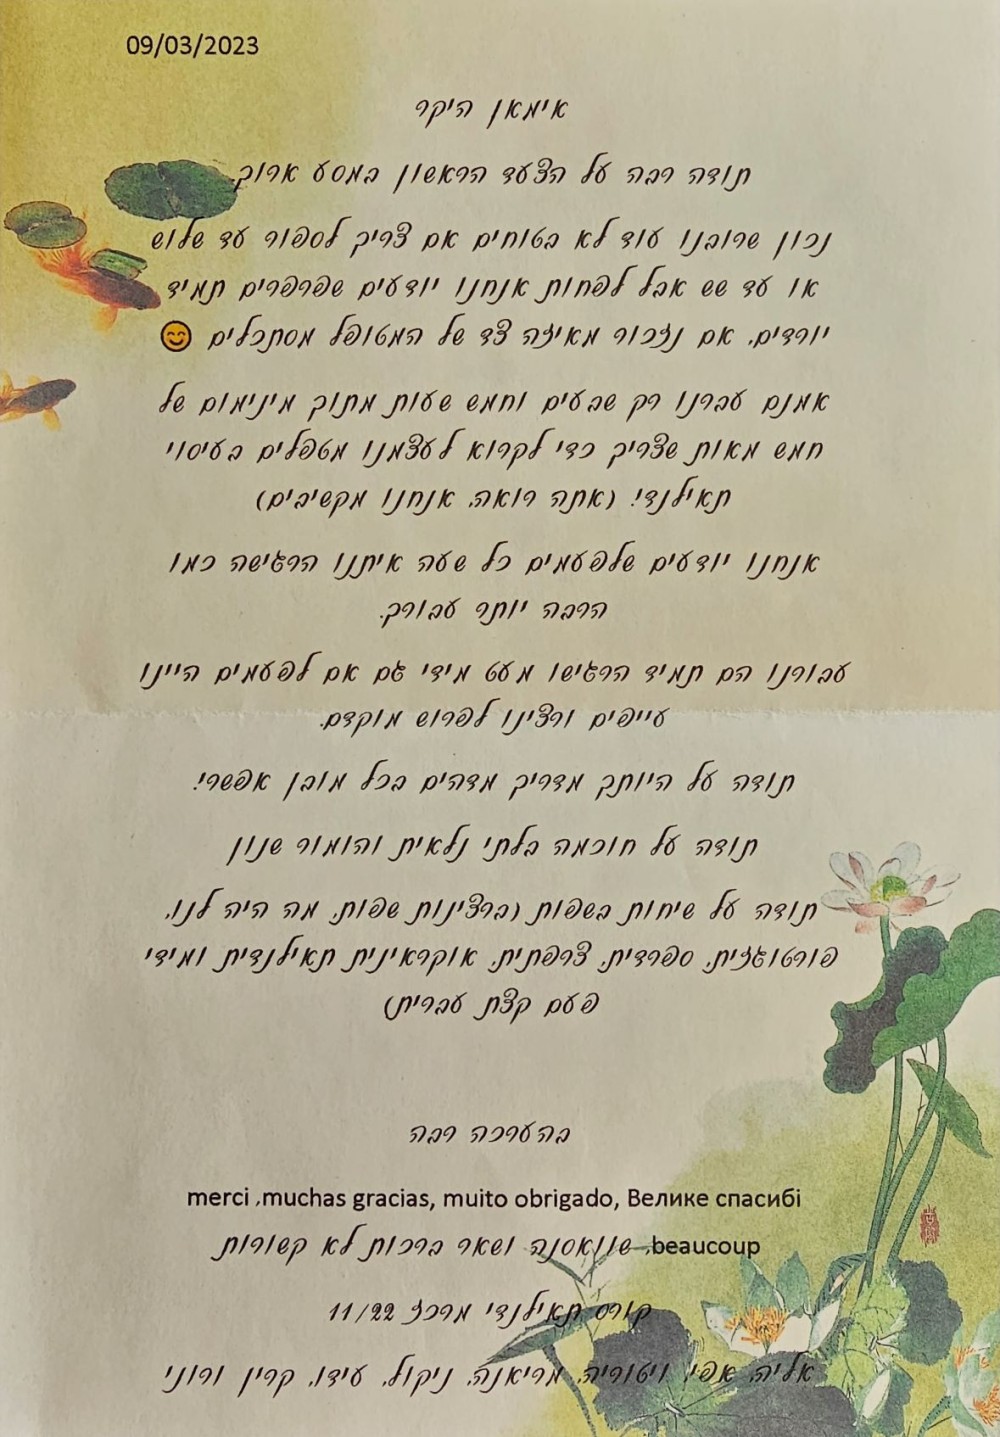 09/03/2023
אימאן היקר
תודה רבה על הצעד הראשון במסע ארוך.
נכון שרובנו עוד לא בטוחים אם צריך לספור עד שלוש
או עד שש אבל לפחות אנחנו יודעים שפרפרים תמיד
יורדים, אם נזכור מאיזה צד של המטופל מסתכלים 😊
אמנם עברנו רק שבעים וחמש שעות מתוך מינימום של
חמש מאות שצריך כדי לקרוא לעצמנו מטפלים בעיסוי
תאילנדי. (אתה רואה, אנחנו מקשיבים)
אנחנו יודעים שלפעמים כל שעה איתנו הרגישה כמו
הרבה יותר עבורך.
עבורנו הם תמיד הרגישו מעט מידי גם אם לפעמים היינו
עייפים ורצינו לפרוש מוקדם.
תודה על היותך מדריך מדהים בכל מובן אפשרי.
תודה על חוכמה בלתי נלאית והומור שנון
תודה על שיחות בשפות (ברצינות שפות, מה היה לנו,
פורטוגזית, ספרדית, צרפתית, אוקראינית תאילנדית ומידי
פעם קצת עברית)
בהערכה רבה
merci ,muchas gracias, muito obrigado, Велике спасибі
beaucoup, שוואסנה ושאר ברכות לא קשורות
קורס תאילנדי מרכז 11/22
אליה, אפי, ויטוריה, מריאנה, ניקול, עידו, קרין ורוני